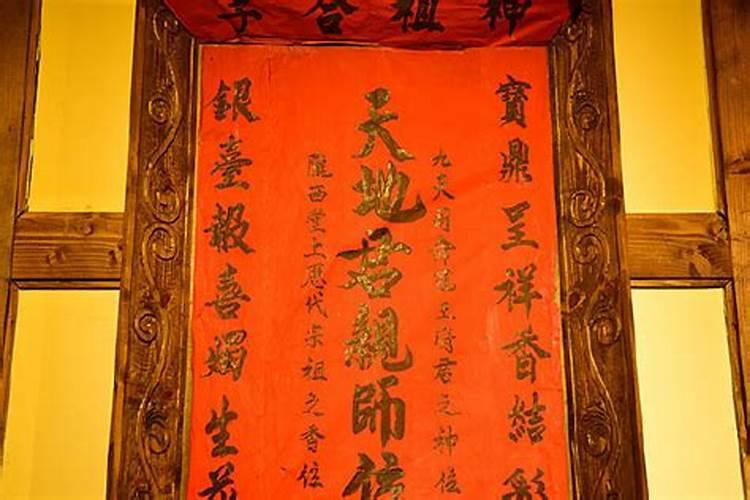 神祖合
寶鼎呈祥香結彩
九天司命灶王府君之神位
天地君親師位
隴西堂上歷代宗祖之香位
銀臺報喜燭生花